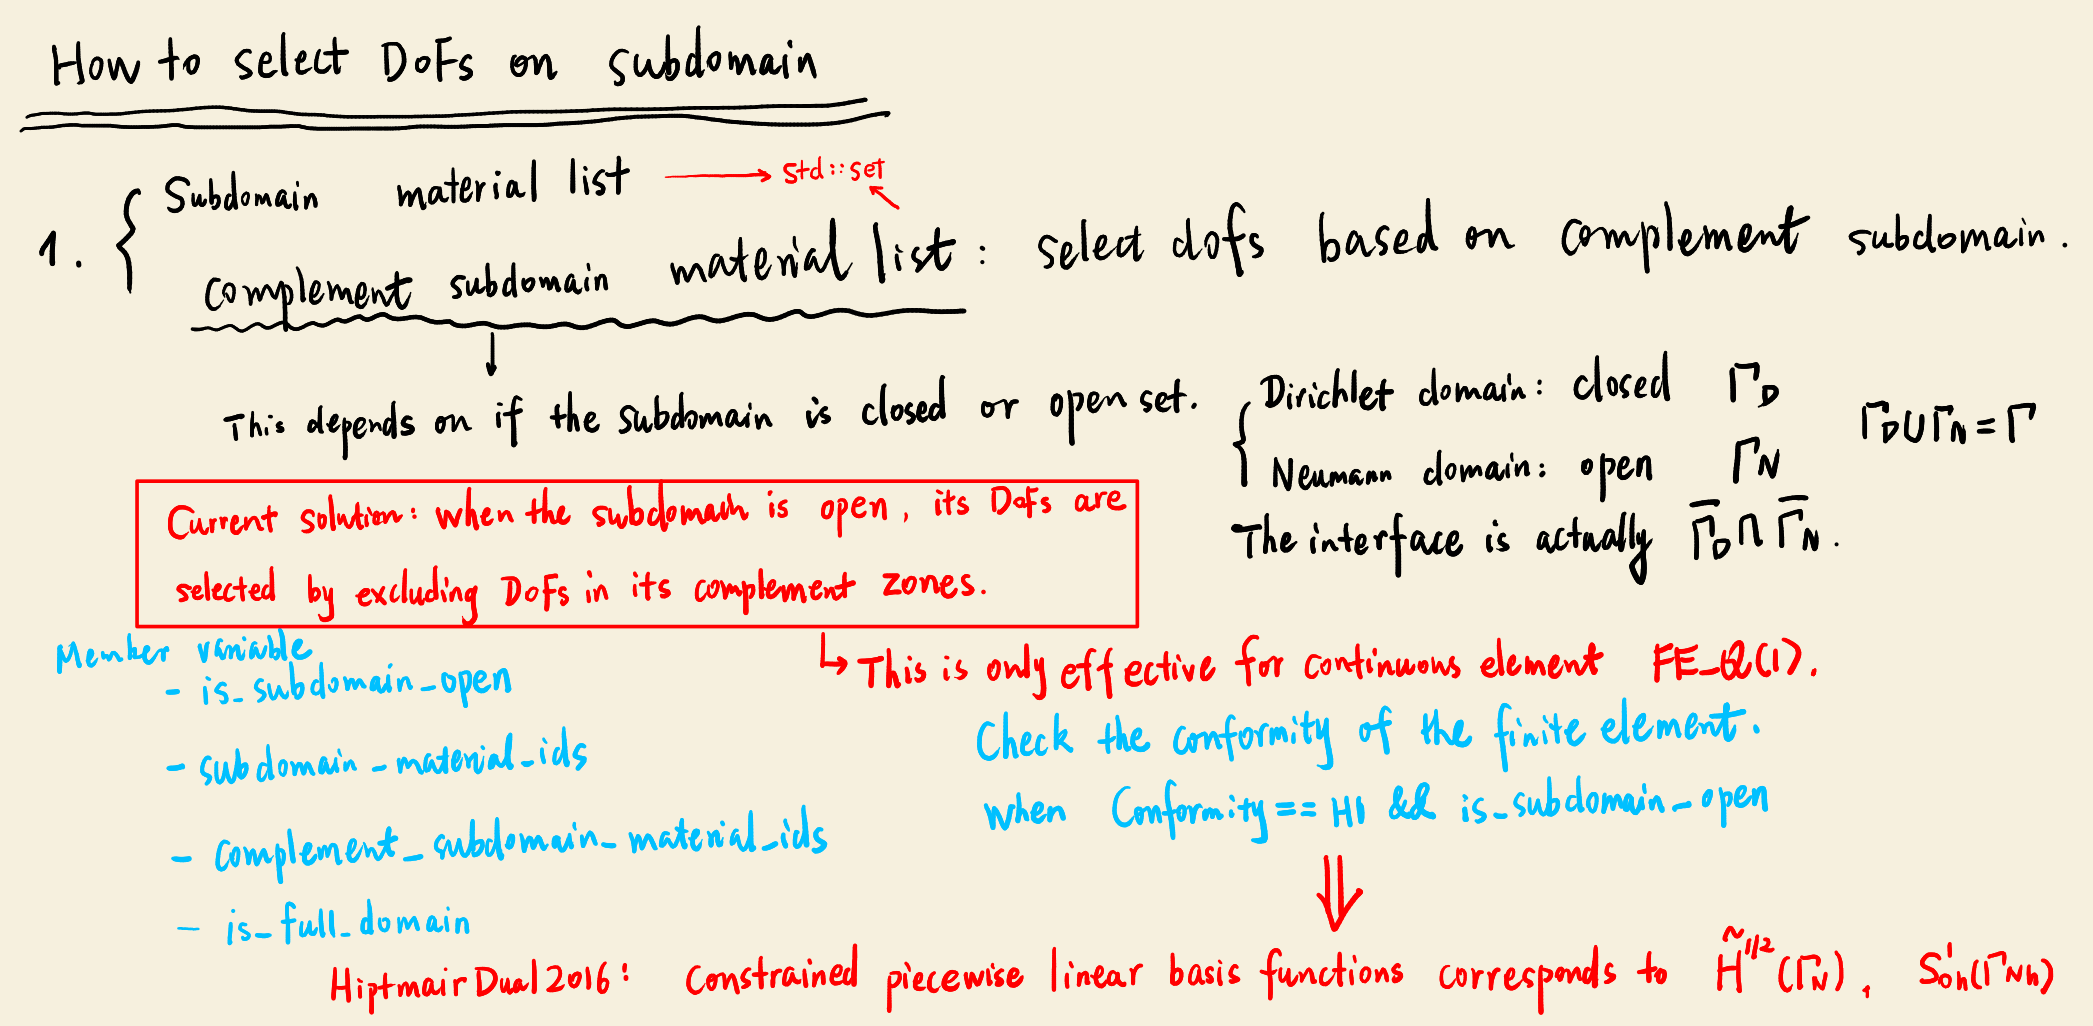 How to select DoFs on subdomain
1. { Subdomain material list → std::set
complement subdomain material list : select dofs based on complement subdomain.
↓
This depends on if the subdomain is closed or open set.
{ Dirichlet domain: closed Γ_D
Neumann domain: open Γ_N
Γ_D ∪ Γ_N = Γ
The interface is actually Γ̅_D ∩ Γ̅_N.
Current solution: when the subdomain is open, its DoFs are
selected by excluding DoFs in its complement zones.
↳ This is only effective for continuous element FE_Q(1).
Check the conformity of the finite element.
when Conformity == H1 && is_subdomain_open
⇓
Member variable
- is_subdomain_open
- subdomain_material_ids
- complement_subdomain_material_ids
- is_full_domain
HiptmairDual2016: Constrained piecewise linear basis functions corresponds to H̃^{1/2}(Γ_N), S^1_{0h}(Γ_{Nh})